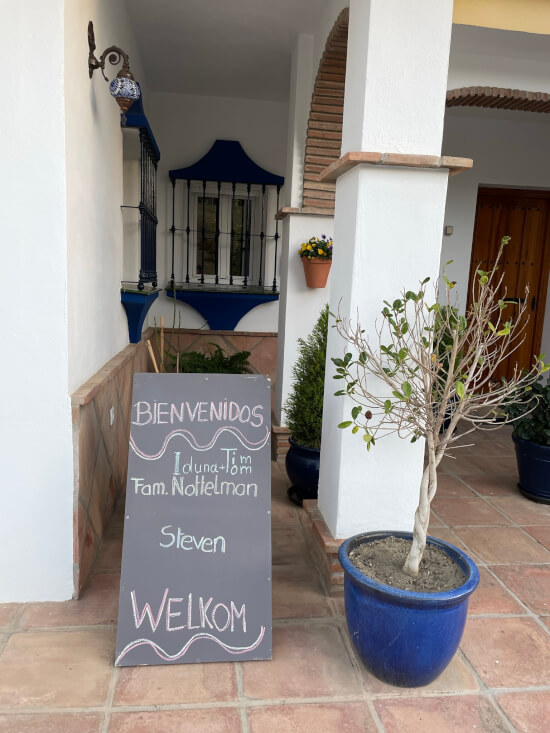 BIENVENIDOS
Iduna+Tim
Tom
Fam. Nottelman
Steven
WELKOM